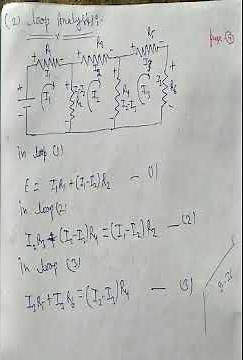 (2) Loop Analysis:-
R1 R3 R5
I1 I2 I3
R2 R4 R6
in loop (1)
E = I1R1 + (I1-I2)R2 — (1)
in loop (2)
I2R3 + (I2-I3)R4 = (I1-I2)R2 — (2)
in loop (3)
I3R5 + I3R6 = (I2-I3)R4 — (3)